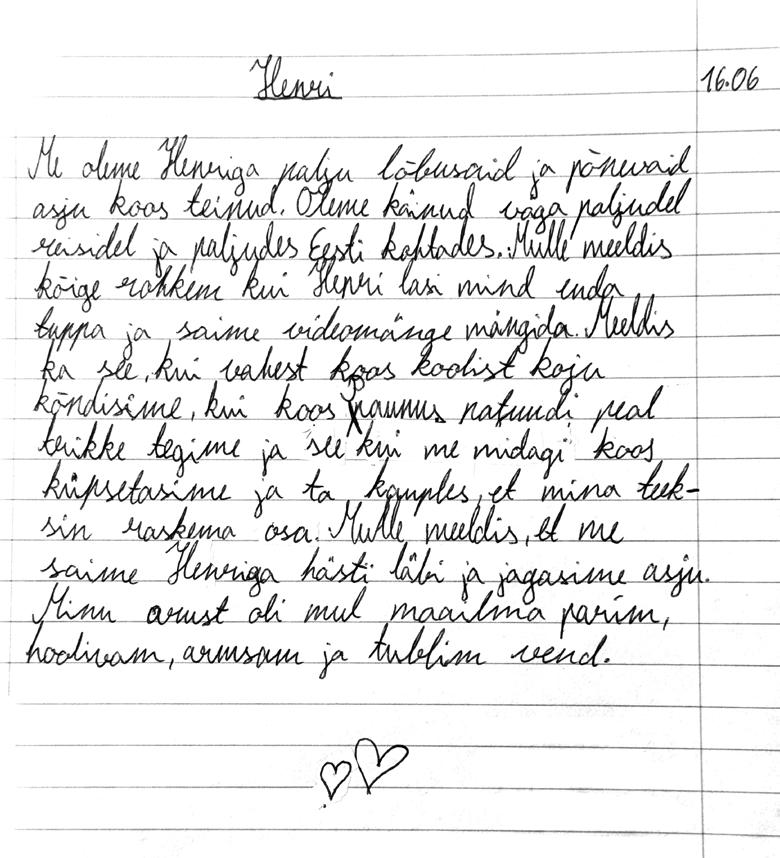 Henri
16.06
Me oleme Henriga palju lõbusaid ja põnevaid
asju koos teinud. Oleme käinud väga paljudel
reisidel ja paljudes Eesti kohtades. Mulle meeldis
kõige rohkem kui Henri lasi mind enda
tuppa ja saime videomänge mängida. Meeldis
ka see, kui vahest koos koolist koju
kõndisime, kui koos Pärnus batuudi peal
trikke tegime ja see kui me midagi koos
küpsetasime ja ta kauples, et mina teek-
sin raskema osa. Mulle meeldis, et me
saime Henriga hästi läbi ja jagasime asju.
Minu arust oli mul maailma parim,
hoolivam, armsam ja tublim vend.